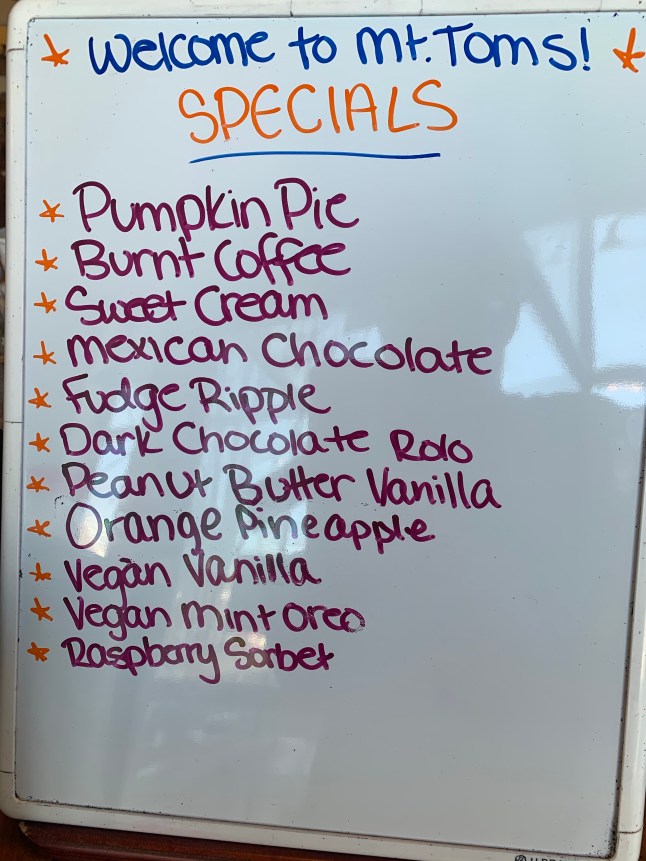 * Welcome to Mt. Toms! *
SPECIALS
* Pumpkin Pie
* Burnt Coffee
* Sweet Cream
* Mexican Chocolate
* Fudge Ripple
* Dark Chocolate Rolo
* Peanut Butter Vanilla
* Orange Pineapple
* Vegan Vanilla
* Vegan Mint Oreo
* Raspberry Sorbet